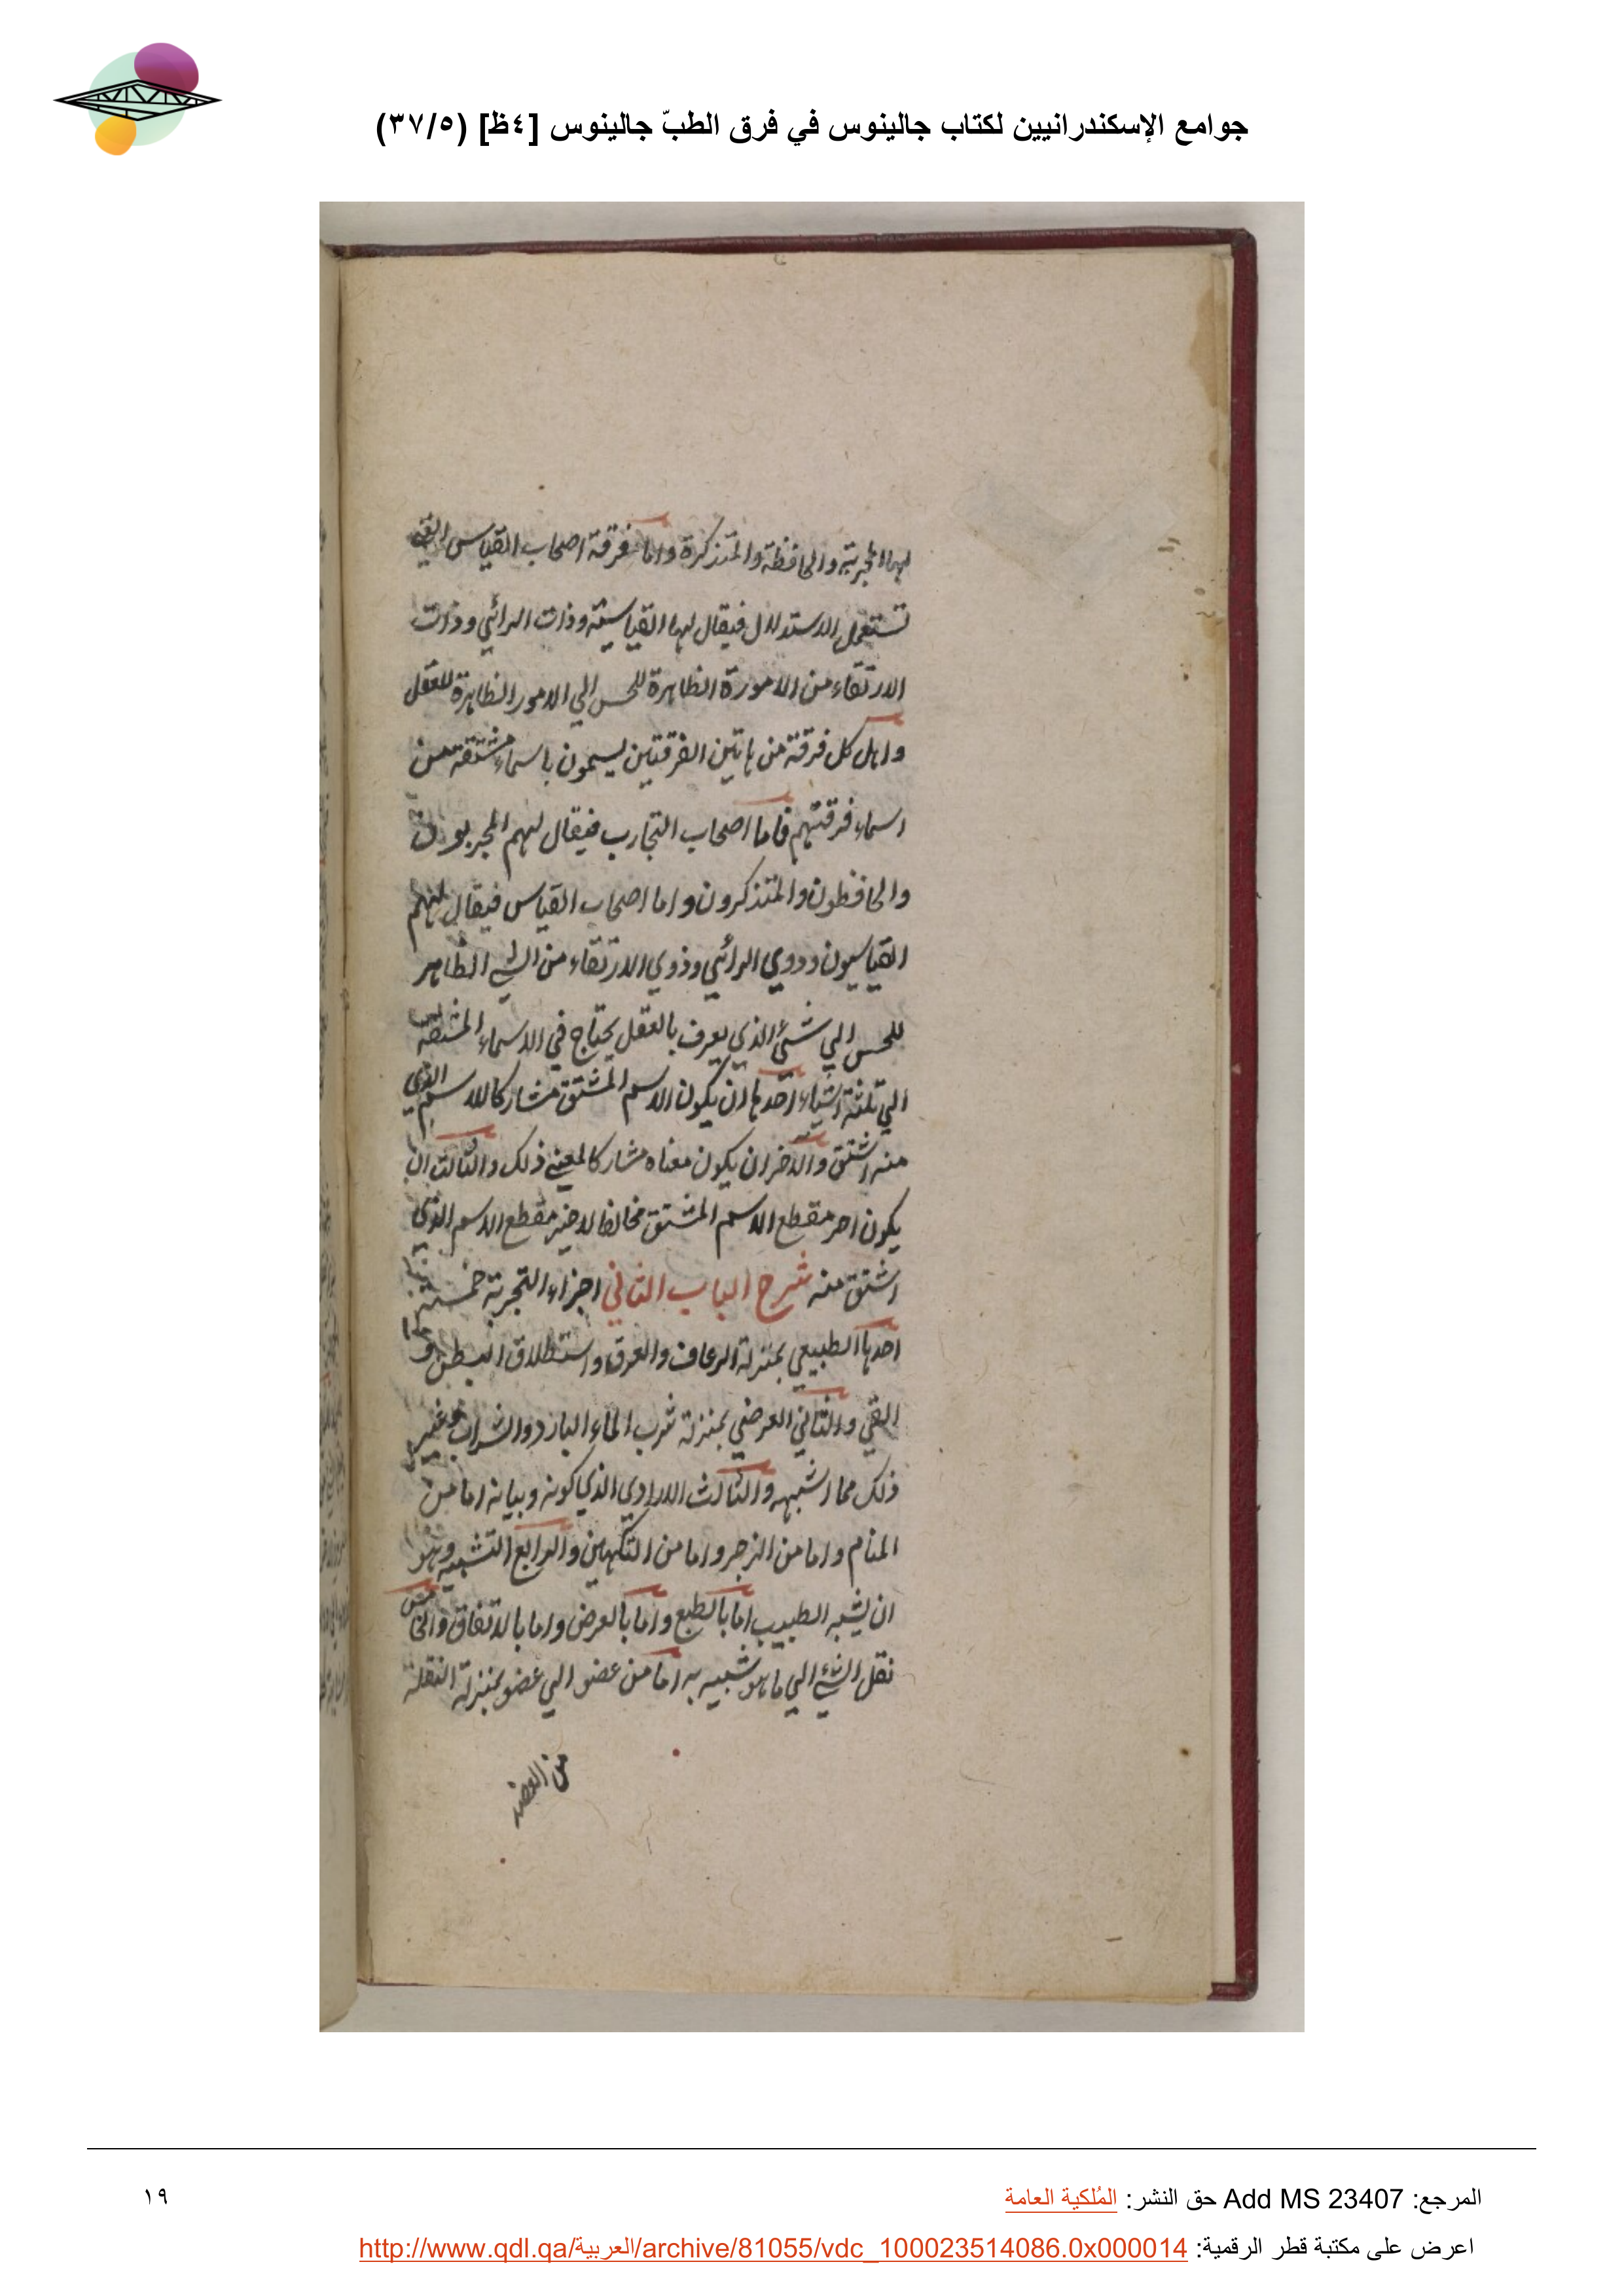 جوامع الإسكندرانيين لكتاب جالينوس في فرق الطبّ جالينوس [٤ظ] (٣٧/٥)
لها المجربة والحافظة والمتذكرة واما فرقة اصحاب القياس التي
تستعمل الاستدلال فيقال لها القياسية وذات الرائي وذات
الارتقاء من الامورة الظاهرة للحس الي الامور الظاهرة للعقل
واهل كل فرقة من هاتين الفرقتين يسمون باسماء مشتقة من
اسماء فرقتهم فاما اصحاب التجارب فيقال لهم المجربون
والحافظون والمتذكرون واما اصحاب القياس فيقال لهم
القياسيون وذوي الرائي وذوي الارتقاء من الشي الظاهر
للحس الي شئ الذي يعرف بالعقل يحتاج في الاسماء المشتقة
الي ثلثة اشياء احدها ان يكون الاسم المشتق مشاركا للاسم الذي
منه اشتق والاخر ان يكون معناه مشاركا لمعني ذلك والثالث ان
يكون اخر مقطع الاسم المشتق مخالفا لاخر مقطع الاسم الذي
اشتق منه شرح الباب الثاني اجزاء التجربة خمسة
احدها الطبيعي بمنزلة الرعاف والعرق واستطلاق البطن و
القي والثاني العرضي بمنزلة شرب الماء البارد والشراب وغير
ذلك مما اشبهه والثالث الارادي الذي كونه وبيانه اما من
المنام واما من الزجر واما من التكهين والرابع التشبيه وهو
ان يشبه الطبيب اما بالطبع واما بالعرض واما بالاتفاق والخامس
نقل الشئ الي ما هو شبيه به اما من عضو الي عضو بمنزلة النقلة
من العضد
المرجع: Add MS 23407 حق النشر: المُلكية العامة
١٩
اعرض على مكتبة قطر الرقمية: http://www.qdl.qa/العربية/archive/81055/vdc_100023514086.0x000014